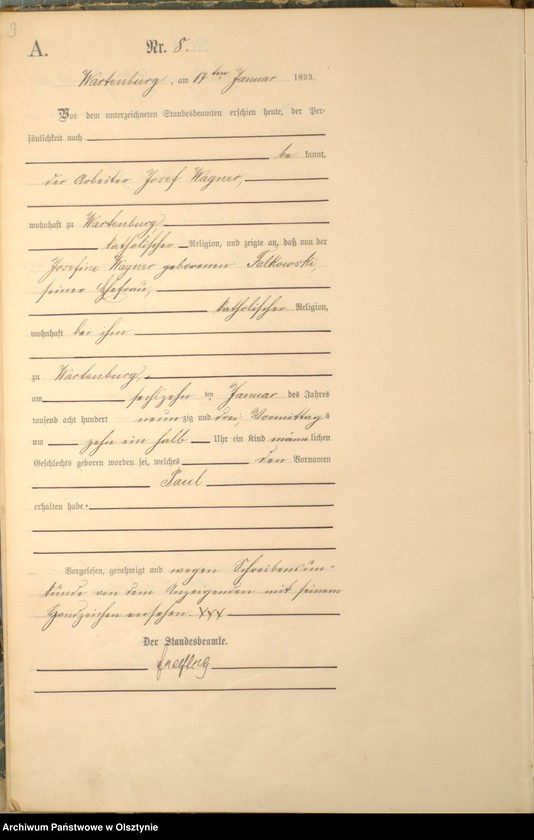 9
A.
Nr. 8.
Wartenburg, am 17ten Januar 1893.
Vor dem unterzeichneten Standesbeamten erschien heute, der Per-
sönlichkeit nach
be kannt,
der Arbeiter Josef Wagner,
wohnhaft zu Wartenburg,
katholischer Religion, und zeigte an, daß von der
Josefine Wagner geborenen Falkowski,
seiner Ehefrau,
katholischer Religion,
wohnhaft bei ihm
zu Wartenburg,
am sechszehn ten Januar des Jahres
tausend acht hundert neun zig und drei, Vormittags
um zehn ein halb Uhr ein Kind männlichen
Geschlechts geboren worden sei, welches den Vornamen
Paul
erhalten habe.
Vorgelesen, genehmigt und wegen Schreibensun-
kunde von dem Anzeigenden mit seinem
Handzeichen versehen. XXX
Der Standesbeamte.
Archiwum Państwowe w Olsztynie